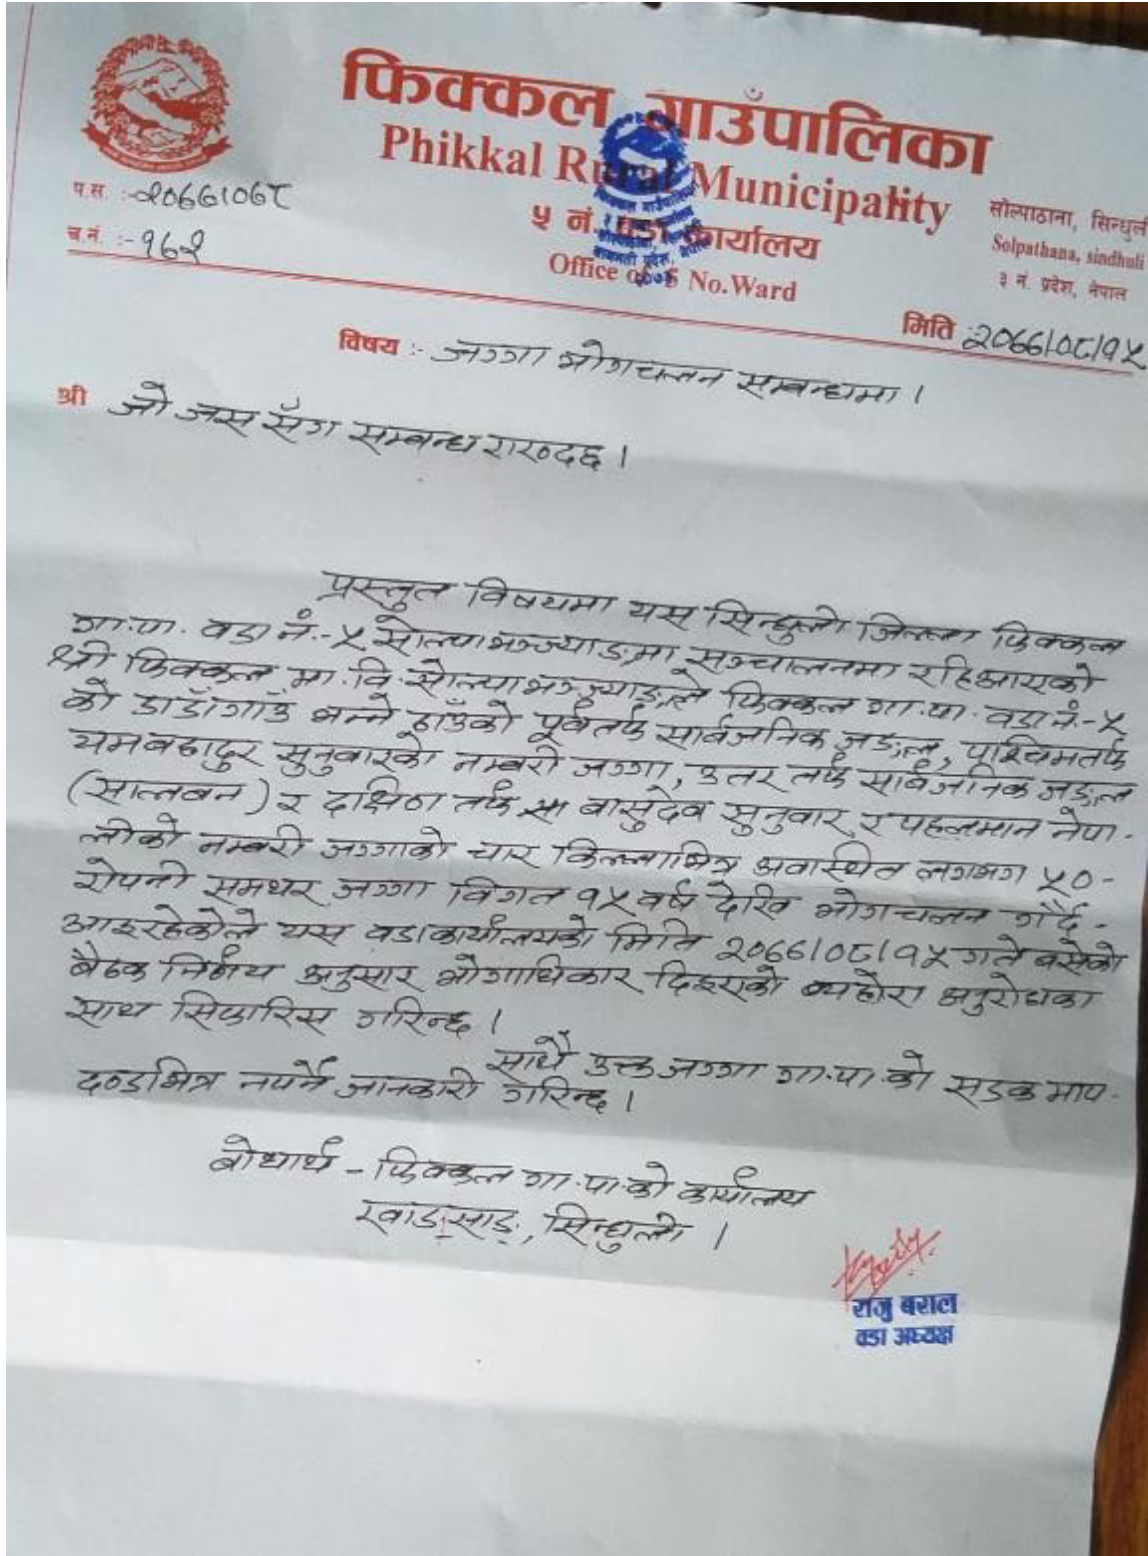 फिक्कल गाउँपालिका
Phikkal Rural Municipality
५ नं. वडा कार्यालय
Office of 5 No.Ward
सोल्पाठाना, सिन्धुली
Solpathana, sindhuli
३ नं. प्रदेश, नेपाल
प.स. :- २०७७/०७८
च.नं. :- १६२
मिति :२०७७/०८/१५
विषय :- जग्गा भोगचलन सम्बन्धमा ।
श्री जो जस सँग सम्बन्ध राख्दछ ।
प्रस्तुत विषयमा यस सिन्धुली जिल्ला फिक्कल
गा.पा. वडा नं.-५ सोल्पाभञ्ज्याङमा सञ्चालनमा रहिआएको
श्री फिक्कल मा.वि. सोल्पाभञ्ज्याङ्गले फिक्कल गा.पा. वडा नं.-५
को डाडाँगाउँ भन्ने ठाउँको पूर्वतर्फ सार्वजनिक जङ्गल, पश्चिमतर्फ
यमबहादुर सुनुवारको नम्बरी जग्गा, उतर तर्फ सार्वजनिक जङ्गल
(सालबन) र दक्षिण तर्फ बासुदेव सुनुवार र पहलमान नेपा-
लीको नम्बरी जग्गाको चार किल्लाभित्र अवस्थित लगभग ५०-
रोपनी समथर जग्गा विगत १५ वर्ष देखि भोगचलन गर्दै-
आइरहेकोले यस वडाकार्यालयको मिति २०७७/०८/१५ गते बसेको
बैठक निर्णय अनुसार भोगाधिकार दिइएको ब्यहोरा अनुरोधका
साथ सिफारिस गरिन्छ ।
साथै उक्त जग्गा गा.पा.को सडक माप-
दण्डभित्र नपर्ने जानकारी गरिन्छ ।
बोधार्थ - फिक्कल गा.पा.को कार्यालय
खाङ्साङ्, सिन्धुली ।
राजु बराल
वडा अध्यक्ष